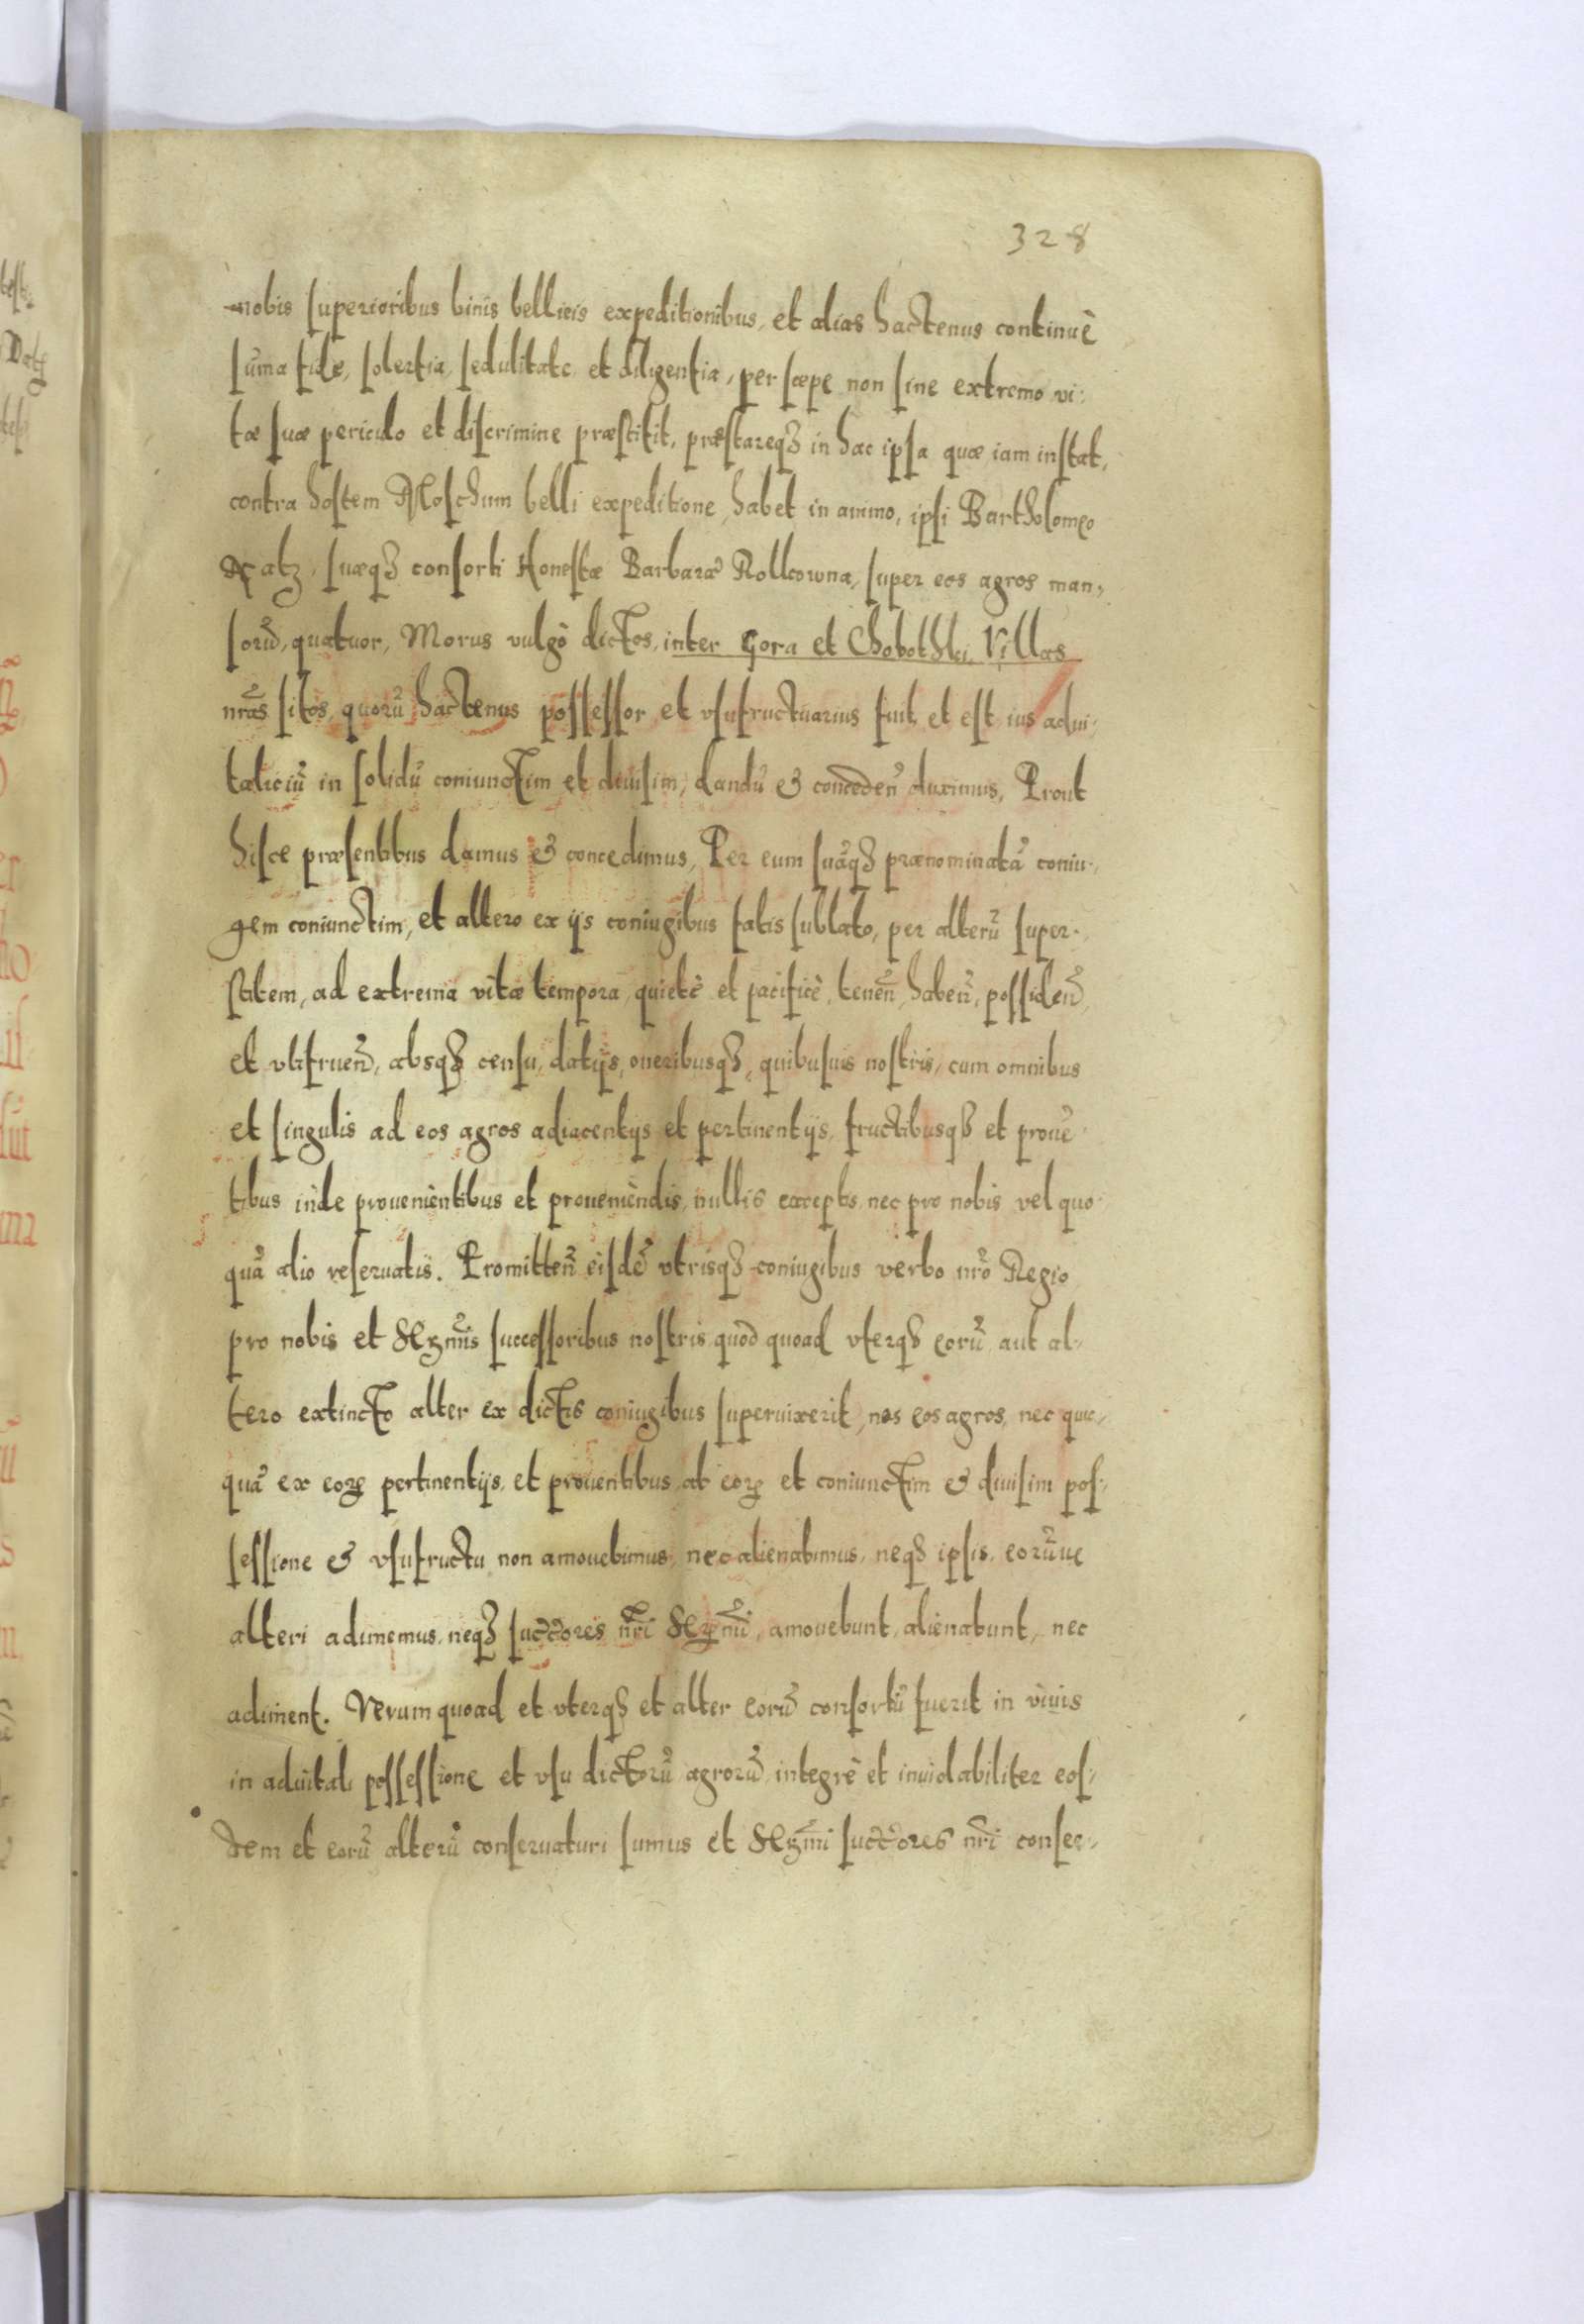 328
nobis superioribus binis bellicis expeditionibus, et alias hactenus continuè
sũma fide, solertia, sedulitate et diligentia, persæpe non sine extremo vi:
tæ suæ periculo et discrimine præstitit, præstareqꝫ in hac ipsa quæ iam instat,
contra hostem Moschum belli expeditione, habet in animo, ipsi Bartholomęo
suæqꝫ consorti Honestæ Barbaræ Rollcowna, super eos agros man,
sorũ, quatuor, Morus vulgò dictos, inter Gora et Villas
nr̃as sitos, quorũ hactenus possessor et vsufructuarius fuit et est ius adui,
taliciũ in solidũ coniunctim et diuisim, dandũ & conceden̄ duximus, Prout
hisce præsentibus damus & concedimus, Per eum suãqꝫ prænominatã coniu,
gem coniunctim, et altero ex ijs coniugibus fatis sublato, per alterũ super,
stitem, ad extrema vitæ tempora, quietè et pacificè, tenen̄, haben̄, possiden̄,
et vtifruen̄, absqꝫ censu, datijs, oneribusqꝫ, quibusuis nostris, cum omnibus
et singulis ad eos agros adiacentijs et pertinentijs, fructibusqꝫ et prouẽ
tibus inde prouenientibus et proueniendis, nullis exceptis, nec pro nobis vel quo
quã alio reseruatis. Promitten̄ eisdẽ vtrisqꝫ coniugibus verbo nr̃o Regio
pro nobis et Serm̃is successoribus nostris, quòd quoad vterqꝫ eorũ aut al,
tero extincto alter ex dictis coniugibus superuixerit, nos eos agros, nec quic,
quã ex eoꝝ pertinentijs, et prouentibus, ab eoꝝ et coniunctim & diuisim pos,
sessione & vsufructu non amouebimus, nec alienabimus, neqꝫ ipsis, eorũue
alteri adimemus, neqꝫ succ̃ores nr̃i Serm̃i, amouebunt, alienabunt, nec
adiment. Verum quoad et vterqꝫ et alter eorũ consortũ fuerit in viuis
in aduitali possessione et vsu dictorũ agrorũ, integrè et inuiolabiliter eos,
dem et eorũ alterũ conseruaturi sumus et Serm̃i succ̃ores nr̃i conser,